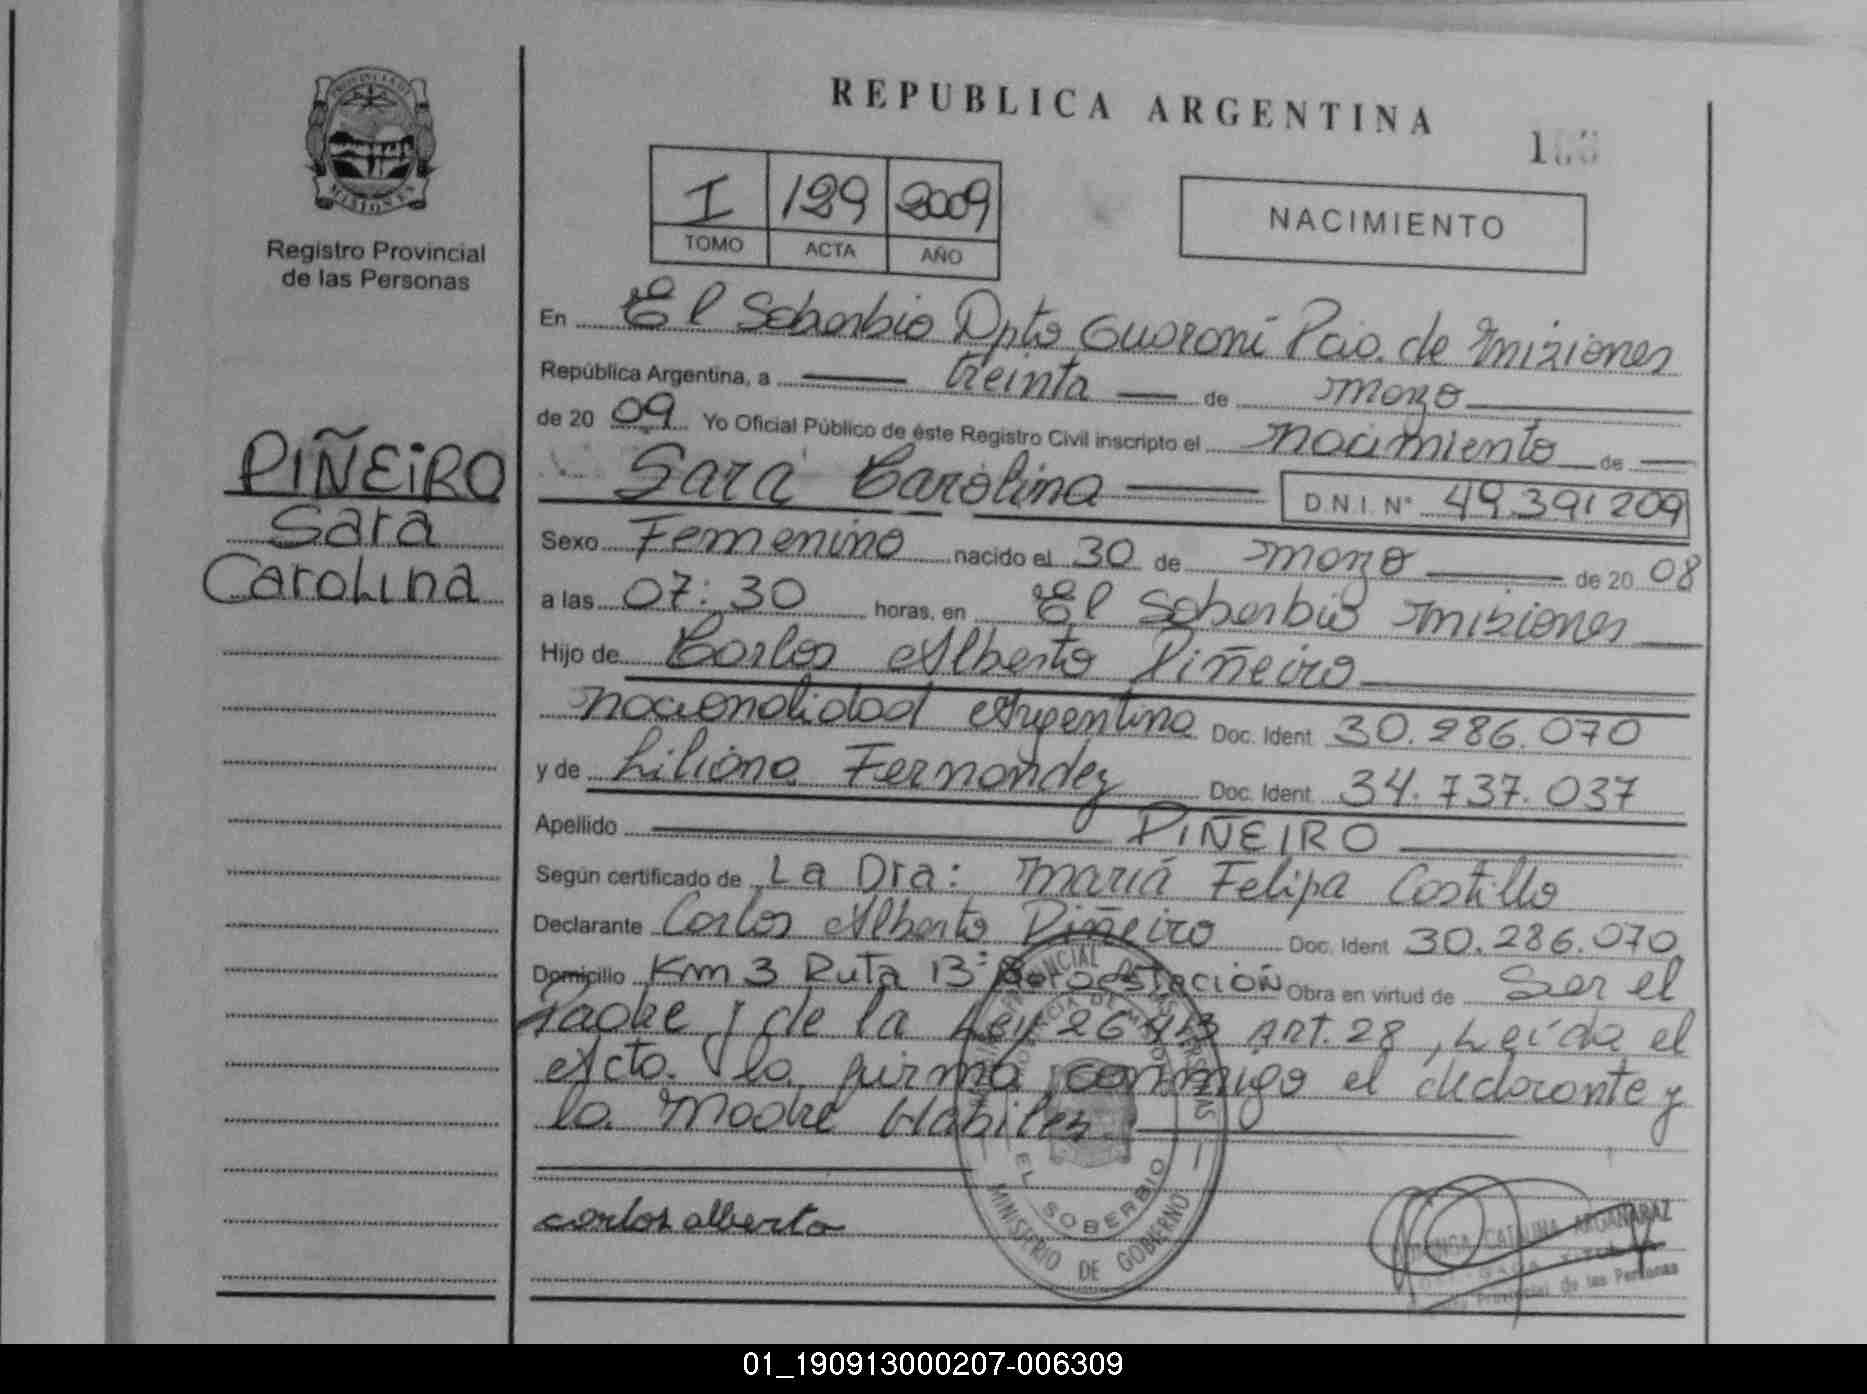 REPUBLICA ARGENTINA
PROVINCIA DE
MISIONES
Registro Provincial
de las Personas
I 129 2009
TOMO ACTA AÑO
NACIMIENTO
En El Soberbio Dpto Guaraní Pcia. de Misiones
República Argentina, a treinta de marzo
de 2009 Yo Oficial Público de éste Registro Civil inscripto el nacimiento de
Sara Carolina D.N.I. Nº 49.391 209
PIÑEIRO
Sara
Carolina
Sexo Femenino nacido el 30 de marzo de 2008
a las 07:30 horas, en El Soberbio Misiones
Hijo de Carlos Alberto Piñeiro
nacionalidad Argentina Doc. Ident 30.286.070
y de Liliana Fernandez Doc. Ident 34.737.037
Apellido PIÑEIRO
Según certificado de La Dra: María Felipa Costillo
Declarante Carlos Alberto Piñeiro Doc. Ident 30.286.070
Domicilio Km 3 Ruta 13 Obra en virtud de Ser el
Padre y de la Ley 26.413 ART. 28, Leída el
Acta. la firma conmigo el declarante y
la Madre Habiles
carlos alberto
EL SOBERBIO
MINISTERIO DE GOBERNO
CATALINA ARGAÑARAZ
Provincial de las Personas
01_190913000207-006309